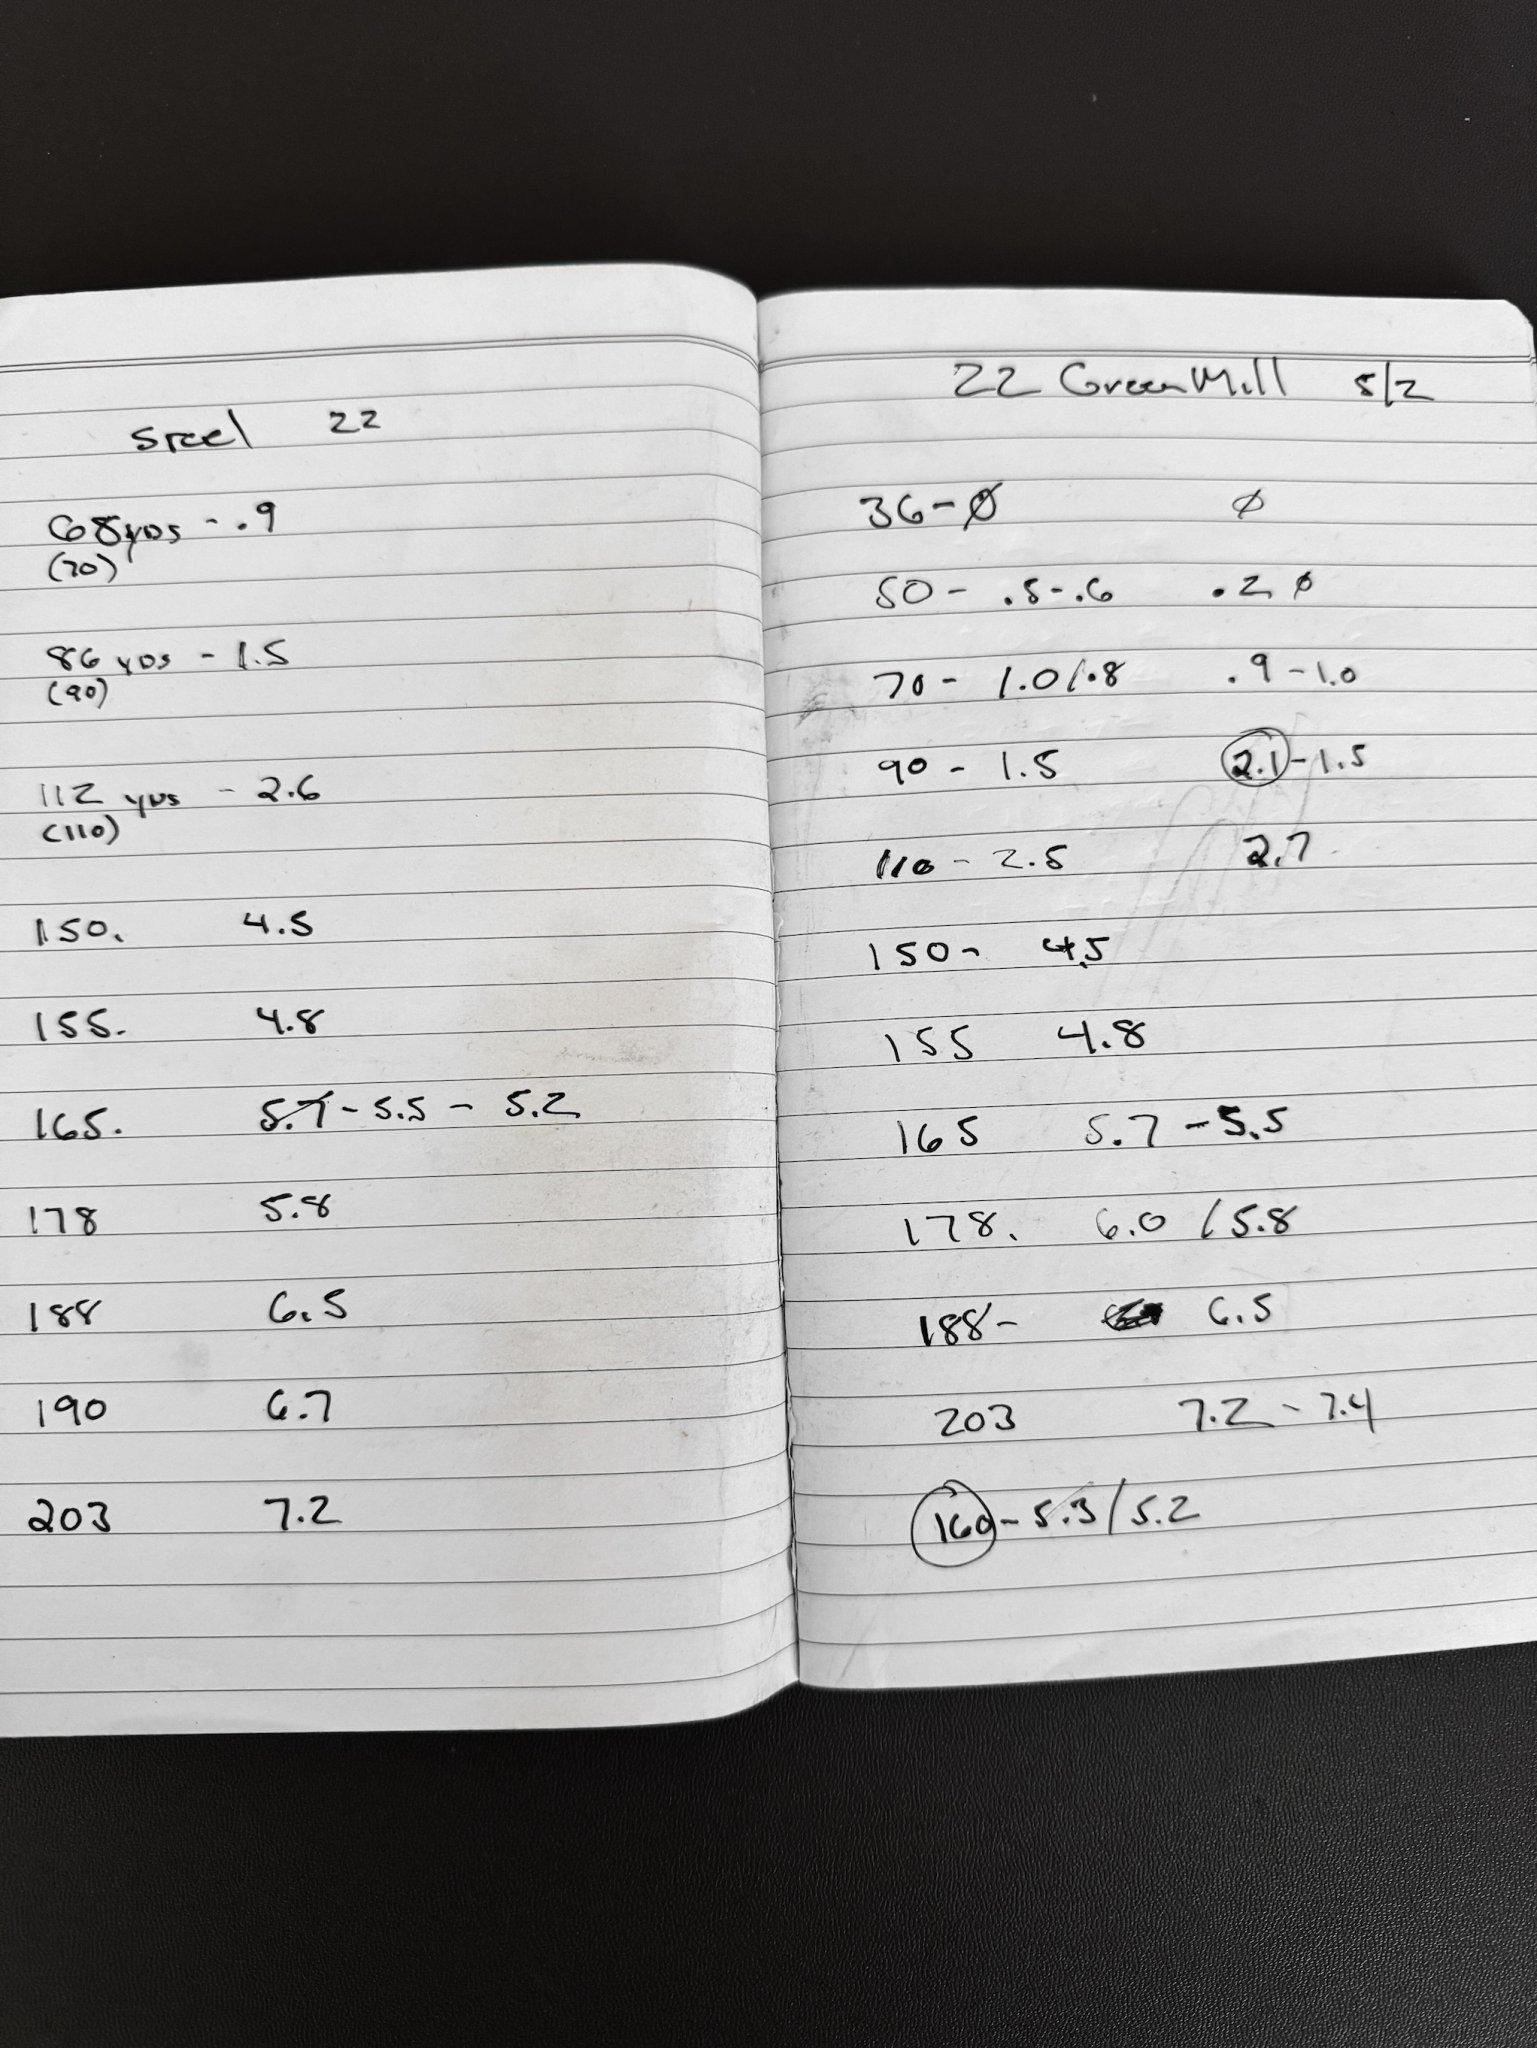 Steel 22
68 yds - .9
(70)
86 yds - 1.5
(90)
112 yds - 2.6
(110)
150. 4.5
155. 4.8
165. 5.7 - 5.5 - 5.2
178 5.8
188 6.5
190 6.7
203 7.2
22 Green Mill 5/2
36 - Ø Ø
50 - .5 - .6 .2 Ø
70 - 1.0 / .8 .9 - 1.0
90 - 1.5 2.1 - 1.5
110 - 2.5 2.7
150 - 4.5
155 4.8
165 5.7 - 5.5
178. 6.0 / 5.8
188 - 6.5
203 7.2 - 7.4
160 - 5.3 / 5.2